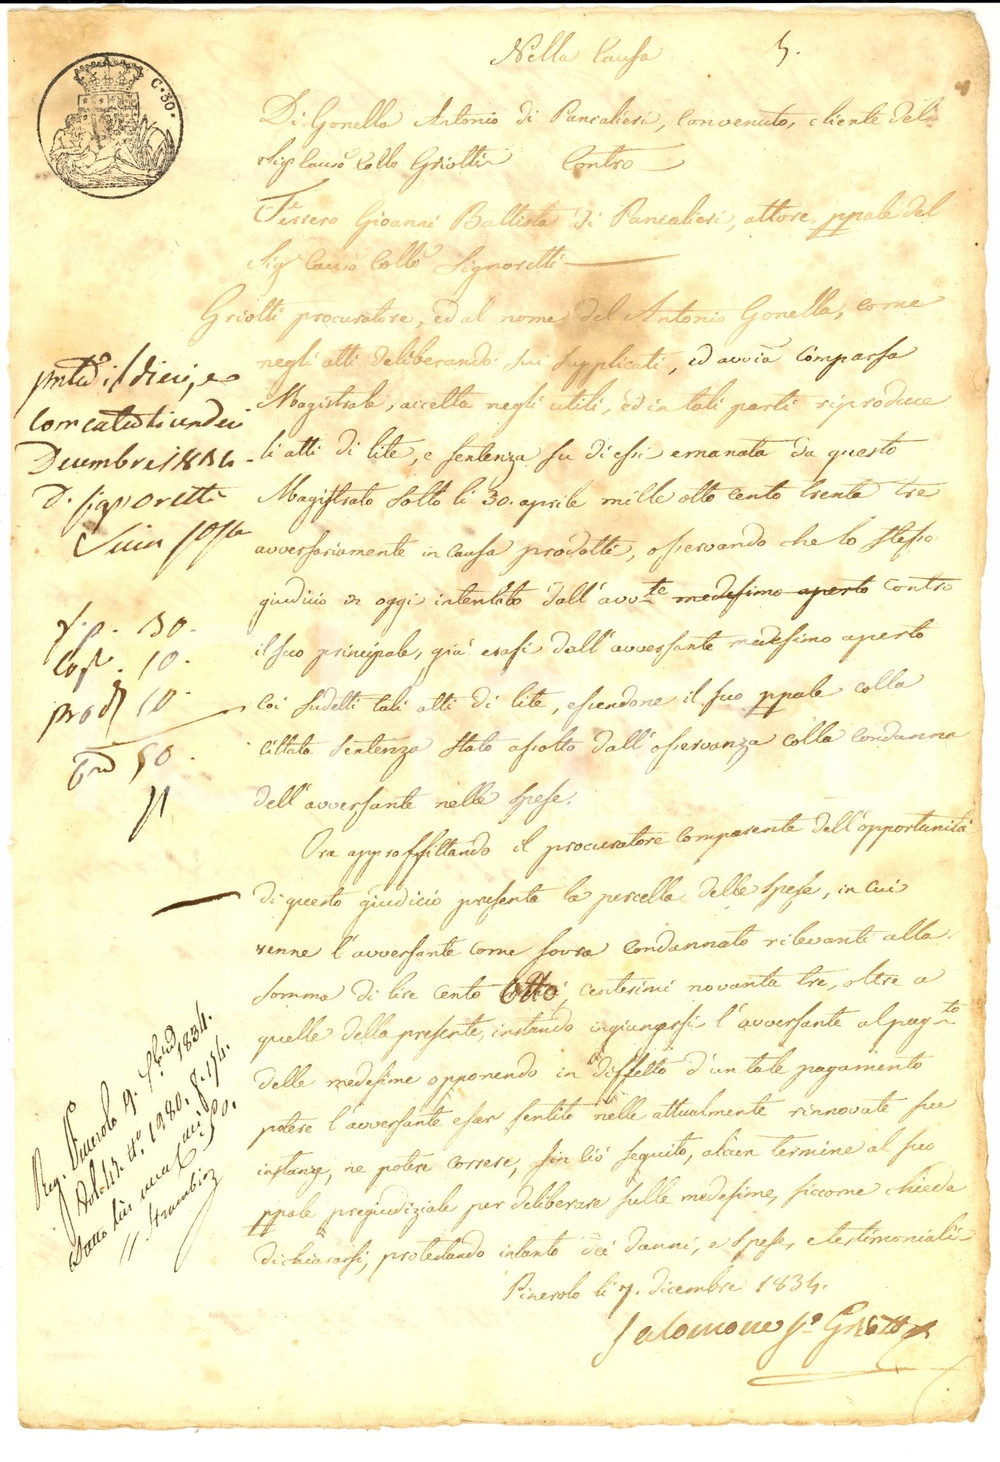 Nella Causa 5.
C. 30.
Di Gonella Antonio di Pancalieri, convenuto, cliente del
Sig. Caus.o Coll.o Griotti Contro
Tessero Gioanni Battista di Pancalieri, attore ppale del
Sig. Caus.o Coll.o Signoretti
Griotti procuratore, ed al nome del Antonio Gonella, come
negli atti deliberando sui supplicati, ed avvia comparsa
Magistrale, accetta negli utili, ed in tali parti riproduce
li atti di lite, e sentenza su di essi emanata da questo
Magistrato sotto li 30. aprile mille otto cento trenta tre
avversariamente in causa prodotti, osservando che lo stesso
giudicio in oggi intentato dall'avv.te medesimo aperto contro
il suo principale, già erasi dall'avversante medesimo aperto
coi sudetti tali atti di lite, essendone il suo ppale colla
cittata sentenza stato assolto dall'osservanza colla condanna
dell'avversante nelle spese.
Ora approffittando il procuratore comparente dell'opportunità
di questo giudicio presenta la parcella delle spese, in cui
venne l'avversante come sovra condannato rilevanti alla
somma di lire cento otto, centesimi novanta tre, oltre a
quelle della presente, instando ingiungersi l'avversante al pag.to
delle medesime opponendo in diffetto d'un tale pagamento
potere l'avversante esser sentito nelle attualmente rinnovate sue
instanze, ne potere correre, sin ciò seguito, alcun termine al suo
ppale pregiudiziale per deliberare sulle medesime, siccome chiede
dichiararsi, protestando intanto dei danni, e spese, e testimoniali
Pinerolo li 7. dicembre 1834.
Salomone Griotti
dieci, e
undeci
Decembre 1834
D. Signoretti
30.
Cost. 10.
prod. 10.
50.
Reg. Pinerolo 9. 1834.
1280.
Strambio